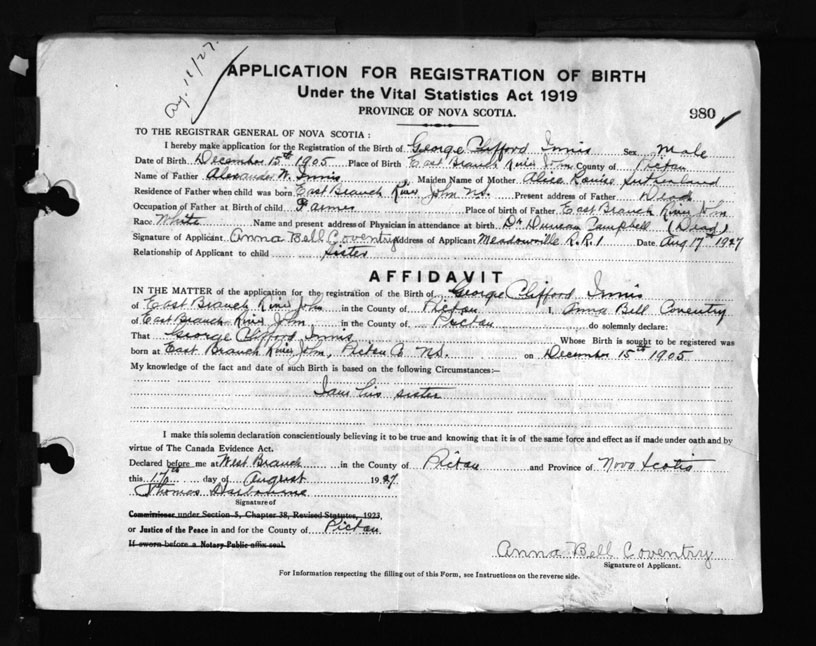 Aug. 18/27.
APPLICATION FOR REGISTRATION OF BIRTH
Under the Vital Statistics Act 1919
PROVINCE OF NOVA SCOTIA.
980
TO THE REGISTRAR GENERAL OF NOVA SCOTIA :
I hereby make application for the Registration of the Birth of George Clifford Innis Sex Male
Date of Birth December 15th 1905 Place of Birth East Branch River John County of Pictou
Name of Father Alexander W. Innis Maiden Name of Mother Alice Sutherland
Residence of Father when child was born East Branch River John N.S. Present address of Father
Occupation of Father at Birth of child Farmer Place of birth of Father East Branch River John
Race White Name and present address of Physician in attendance at birth Dr Duncan Campbell (Dead)
Signature of Applicant Anna Bell Coventry Address of Applicant Meadowville R.R.1 Date Aug 17th 1927
Relationship of Applicant to child Sister
AFFIDAVIT
IN THE MATTER of the application for the registration of the Birth of George Clifford Innis
of East Branch River John in the County of Pictou I, Anna Bell Coventry
of East Branch River John in the County of Pictou do solemnly declare:
That George Clifford Innis Whose Birth is sought to be registered was
born at East Branch River John, Pictou Co NS. on December 15th 1905
My knowledge of the fact and date of such Birth is based on the following Circumstances:—
I am his sister
I make this solemn declaration conscientiously believing it to be true and knowing that it is of the same force and effect as if made under oath and by
virtue of The Canada Evidence Act.
Declared before me at West Branch in the County of Pictou and Province of Nova Scotia
this 17th day of August 1927
Thomas
Signature of
Commissioner under Section 5, Chapter 38, Revised Statutes, 1923,
or Justice of the Peace in and for the County of Pictou
If sworn before a Notary Public affix seal.
Anna Bell Coventry
Signature of Applicant.
For Information respecting the filling out of this Form, see Instructions on the reverse side.